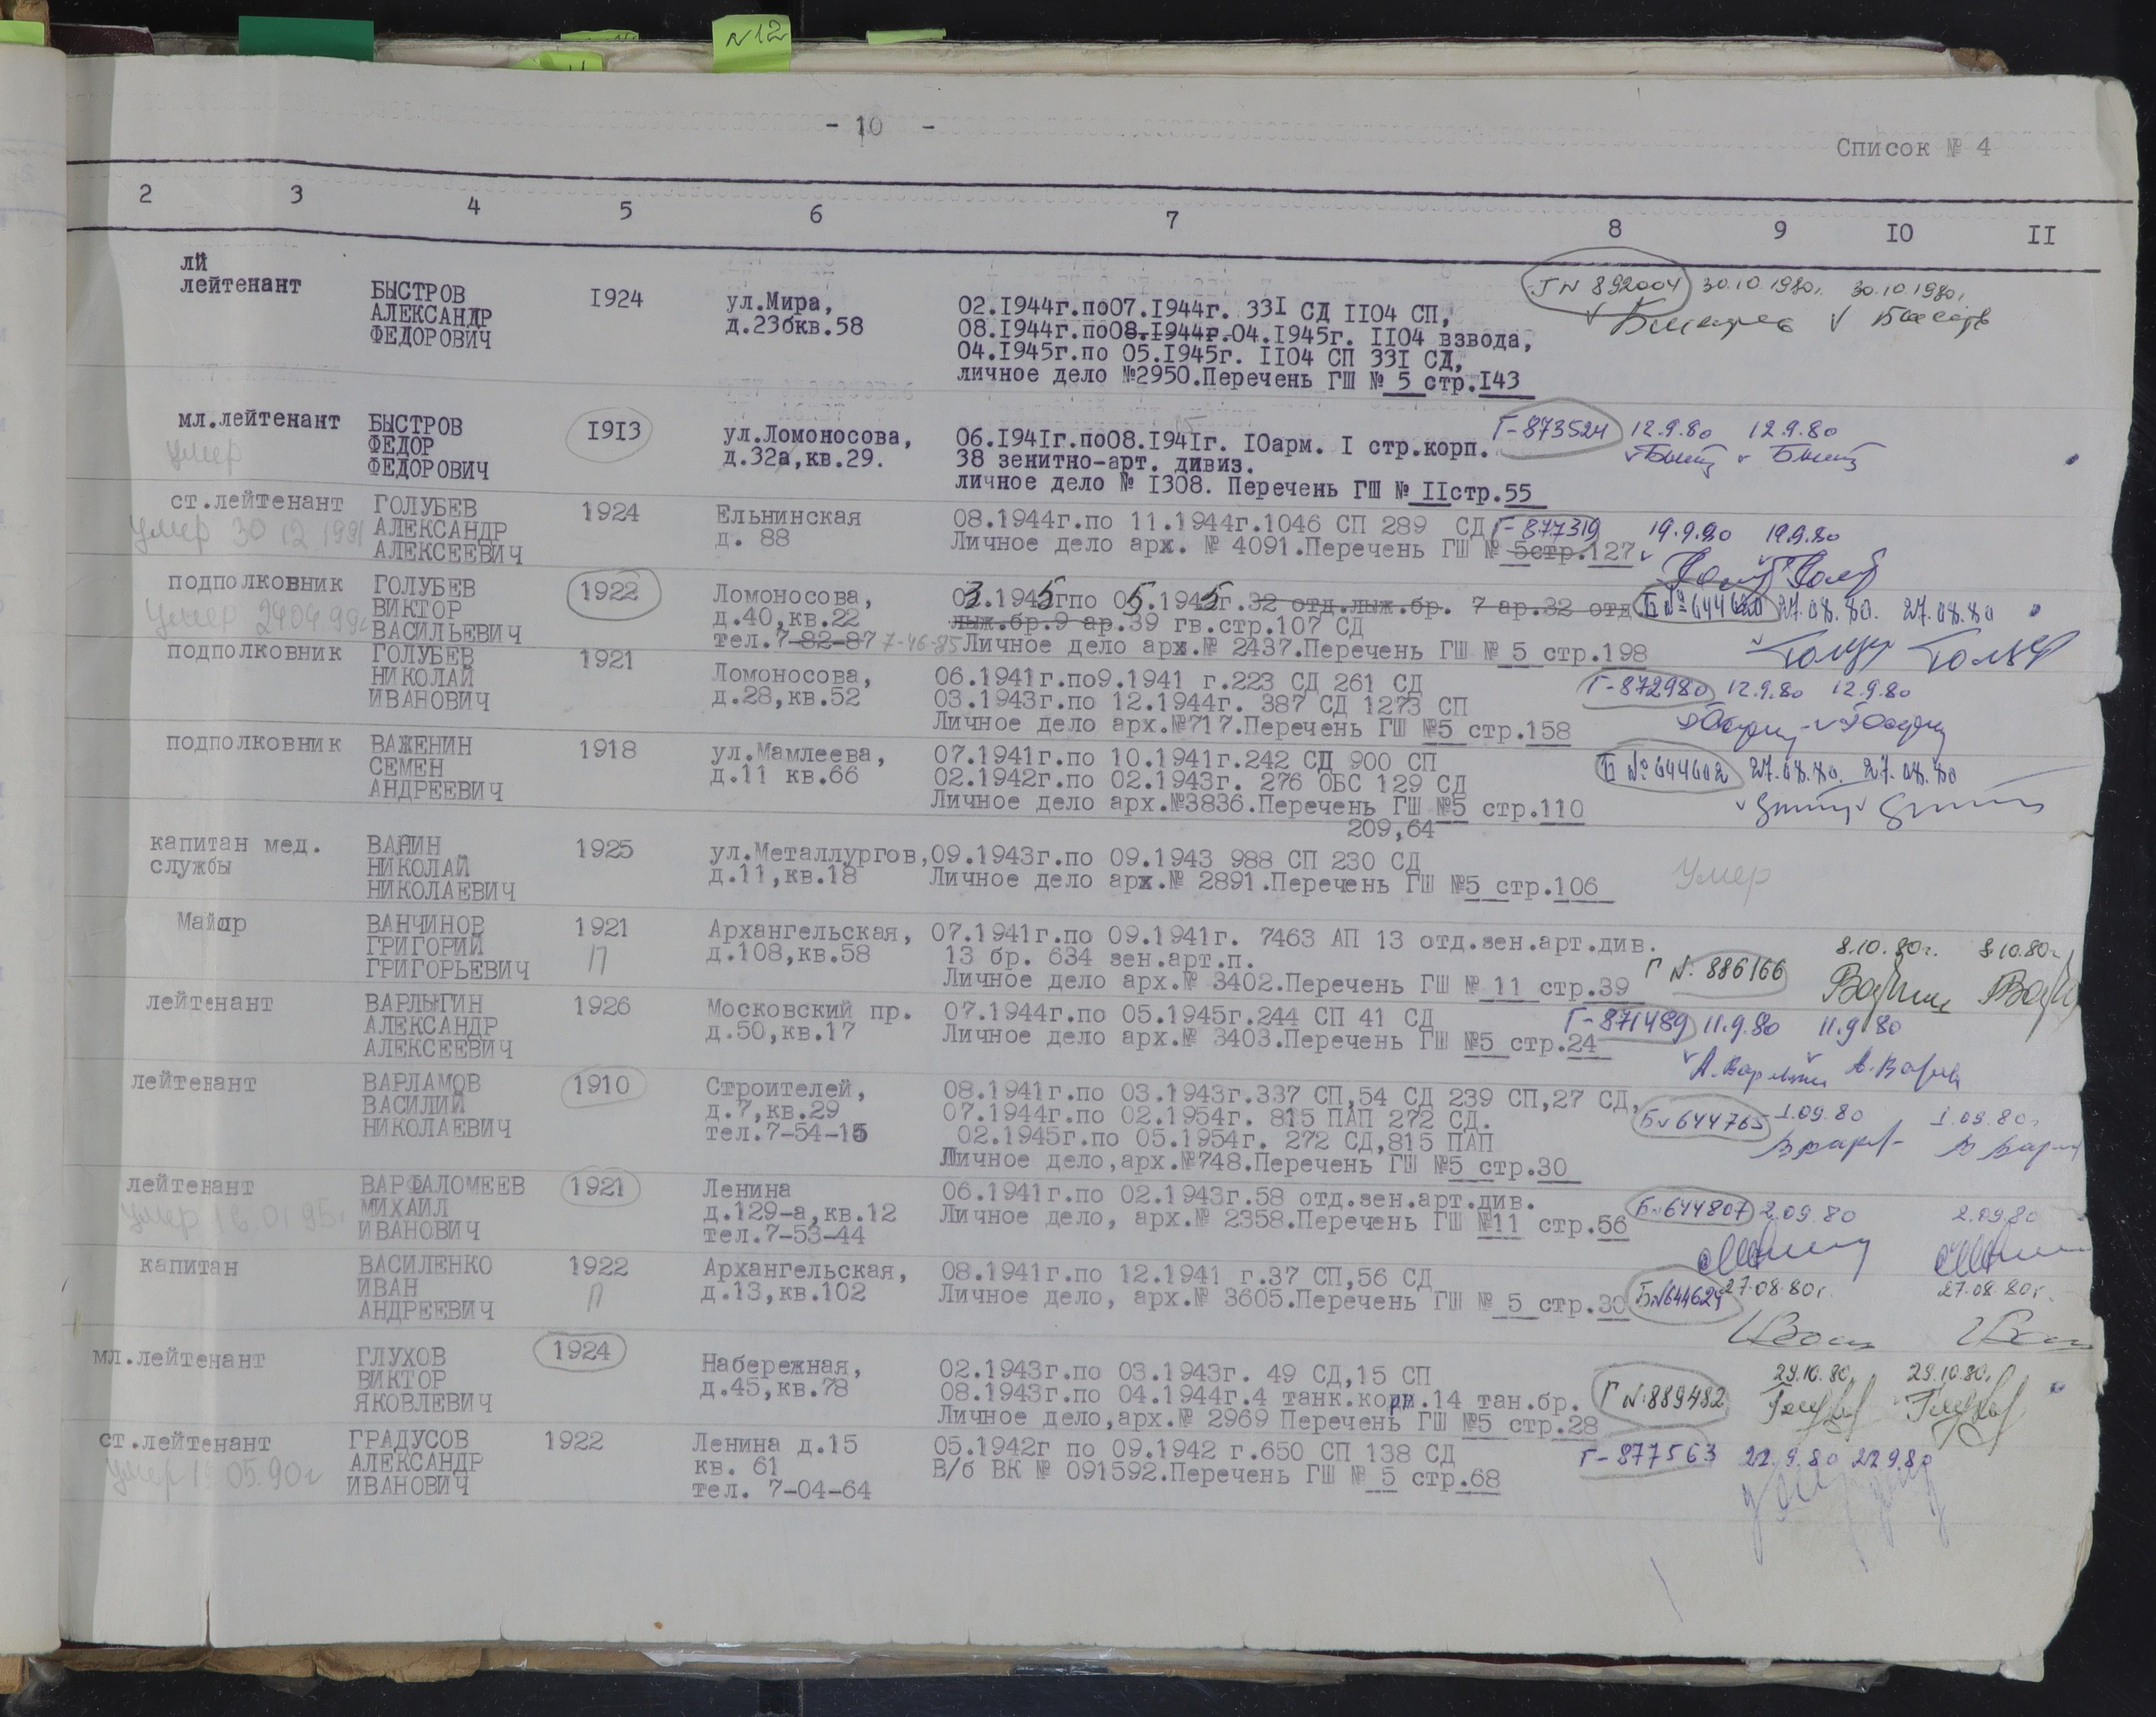 N12
- 10 -
Список № 4
2 3 4 5 6 7 8 9 IO II
лй
лейтенант БЫСТРОВ I924 ул.Мира, 02.I944г.по07.I944г. 33I СД II04 СП, Г N 892004 30.10.1980г. 30.10.1980г.
АЛЕКСАНДР д.23бкв.58 08.I944г.по08.I944г.04.I945г. II04 взвода,
ФЕДОРОВИЧ 04.I945г.по 05.I945г. II04 СП 33I СД,
личное дело №2950.Перечень ГШ № 5 стр.I43
мл.лейтенант БЫСТРОВ I9I3 ул.Ломоносова, 06.I94Iг.по08.I94Iг. I0арм. I стр.корп. Г-873524 12.9.80 12.9.80
умер ФЕДОР д.32а,кв.29. 38 зенитно-арт. дивиз.
ФЕДОРОВИЧ личное дело № I308. Перечень ГШ № IIстр.55
ст.лейтенант ГОЛУБЕВ 1924 Ельнинская 08.1944г.по 11.1944г.1046 СП 289 СД Г-877319 19.9.80 19.9.80
умер 30 12 1991 АЛЕКСАНДР д. 88 Личное дело арх. № 4091.Перечень ГШ № 5стр.127
АЛЕКСЕЕВИЧ
подполковник ГОЛУБЕВ 1922 Ломоносова, 03.1945гпо 05.1945г.32 отд.лыж.бр. 7 ар.32 отд Б № 644620 27.08.80. 27.08.80
умер 240499г ВИКТОР д.40,кв.22 лыж.бр.9 ар.39 гв.стр.107 СД
ВАСИЛЬЕВИЧ тел.7-82-87 7-46-85 Личное дело арх.№ 2437.Перечень ГШ № 5 стр.198
подполковник ГОЛУБЕВ 1921 Ломоносова, 06.1941г.по9.1941 г.223 СД 261 СД Г-872980 12.9.80 12.9.80
НИКОЛАЙ д.28,кв.52 03.1943г.по 12.1944г. 387 СД 1273 СП
ИВАНОВИЧ Личное дело арх.№717.Перечень ГШ №5 стр.158
подполковник ВАЖЕНИН 1918 ул.Мамлеева, 07.1941г.по 10.1941г.242 СД 900 СП Б № 644602 27.08.80. 27.08.80
СЕМЕН д.11 кв.66 02.1942г.по 02.1943г. 276 ОБС 129 СД
АНДРЕЕВИЧ Личное дело арх.№3836.Перечень ГШ №5 стр.110
209,64
капитан мед. ВАНИН 1925 ул.Металлургов, 09.1943г.по 09.1943 988 СП 230 СД умер
службы НИКОЛАЙ д.11,кв.18 Личное дело арх.№ 2891.Перечень ГШ №5 стр.106
НИКОЛАЕВИЧ
Майор ВАНЧИНОВ 1921 Архангельская, 07.1941г.по 09.1941г. 7463 АП 13 отд.зен.арт.див. 8.10.80г. 8.10.80г
ГРИГОРИЙ П д.108,кв.58 13 бр. 634 зен.арт.п. Г N. 886166
ГРИГОРЬЕВИЧ Личное дело арх.№ 3402.Перечень ГШ № 11 стр.39
лейтенант ВАРЛЫГИН 1926 Московский пр. 07.1944г.по 05.1945г.244 СП 41 СД Г-871489 11.9.80 11.9.80
АЛЕКСАНДР д.50,кв.17 Личное дело арх.№ 3403.Перечень ГШ №5 стр.24
АЛЕКСЕЕВИЧ
лейтенант ВАРЛАМОВ 1910 Строителей, 08.1941г.по 03.1943г.337 СП,54 СД 239 СП,27 СД,
ВАСИЛИЙ д.7,кв.29 07.1944г.по 02.1954г. 815 ПАП 272 СД. БN644765 1.09.80 1.09.80г
НИКОЛАЕВИЧ тел.7-54-15 02.1945г.по 05.1954г. 272 СД,815 ПАП
Личное дело,арх.№748.Перечень ГШ №5 стр.30
лейтенант ВАРФАЛОМЕЕВ 1921 Ленина 06.1941г.по 02.1943г.58 отд.зен.арт.див. БN644807 2.09.80 2.09.80
умер 16.01 95г МИХАИЛ д.129-а,кв.12 Личное дело, арх.№ 2358.Перечень ГШ №11 стр.56
ИВАНОВИЧ тел.7-53-44
капитан ВАСИЛЕНКО 1922 Архангельская, 08.1941г.по 12.1941 г.37 СП,56 СД
ИВАН П д.13,кв.102 Личное дело, арх.№ 3605.Перечень ГШ № 5 стр.30 БN644624 27.08.80г. 27.08.80г.
АНДРЕЕВИЧ
мл.лейтенант ГЛУХОВ 1924 Набережная, 02.1943г.по 03.1943г. 49 СД,15 СП 29.10.80. 29.10.80г
ВИКТОР д.45,кв.78 08.1943г.по 04.1944г.4 танк.корп.14 тан.бр. Г N.889482
ЯКОВЛЕВИЧ Личное дело,арх.№ 2969 Перечень ГШ №5 стр.28
ст.лейтенант ГРАДУСОВ 1922 Ленина д.15 05.1942г по 09.1942 г.650 СП 138 СД Г-877563 22.9.80 22.9.80
умер 05.90г АЛЕКСАНДР кв. 61 В/б ВК № 091592.Перечень ГШ № 5 стр.68
ИВАНОВИЧ тел. 7-04-64